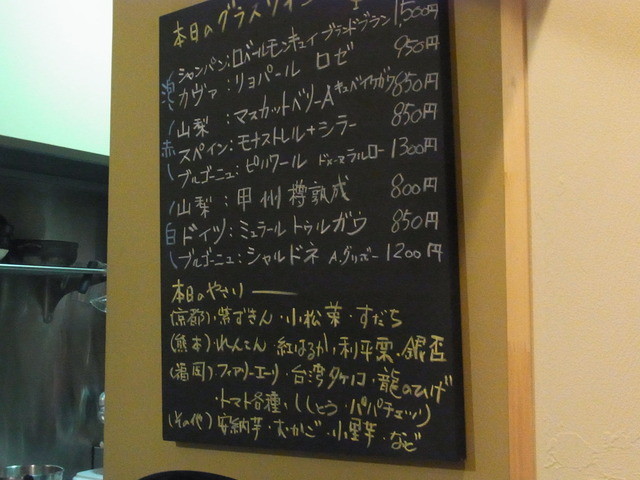 本日のグラスワイン
シャンパン:ロベールモンキュイ ブランドブラン 1,500円
泡 カヴァ:リョパール ロゼ 950円
山梨:マスカットベリーA キュベイケガワ 850円
赤 スペイン:モナストレル+シラー 850円
ブルゴーニュ:ピノノワール 1300円
山梨:甲州樽熟成 800円
白 ドイツ:ミュラー トゥルガウ 850円
ブルゴーニュ:シャルドネ A.グリボー 1200円
本日のやさい
(京都)紫ずきん・小松菜・すだち
(熊本)れんこん・紅はるか・利平栗・銀杏
(福岡)フェアリーエリンギ・台湾タケノコ・龍のひげ
トマト各種・ししとう・パパチェッリ
(その他)安納芋・むかご・小里芋・など